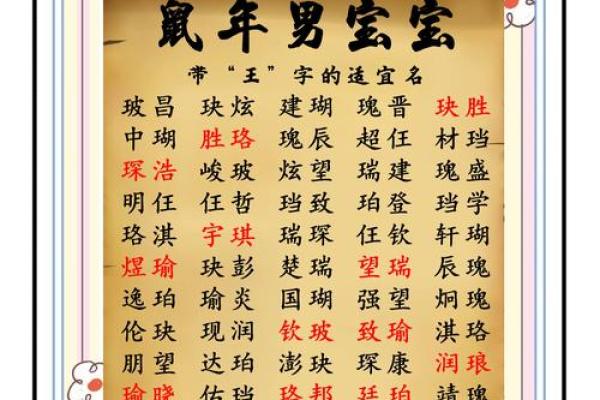 鼠年男宝宝
带“王”字的适宜名
玻昌 玦炫 建瑚 瑰晋 玦胜
中瑚 胜珞 瑰辰 超仼 材珰
琛浩 峻玻 炫望 瑞建 瑰盛
明仼 仼哲 珰致 珀登 珰学
珞淇 宇琪 瑞琛 仼钦 轩瑚
煜瑜 玦彭 楚瑞 望瑞 辰瑰
逸珀 瑜炎 国瑚 强望 炯瑰
伦玦 现润 钦玻 致瑜 淇珞
朋望 达珀 澎玦 琛康 润琅
瑜晓 佑珰 珞邦 廷珀 靖瑰